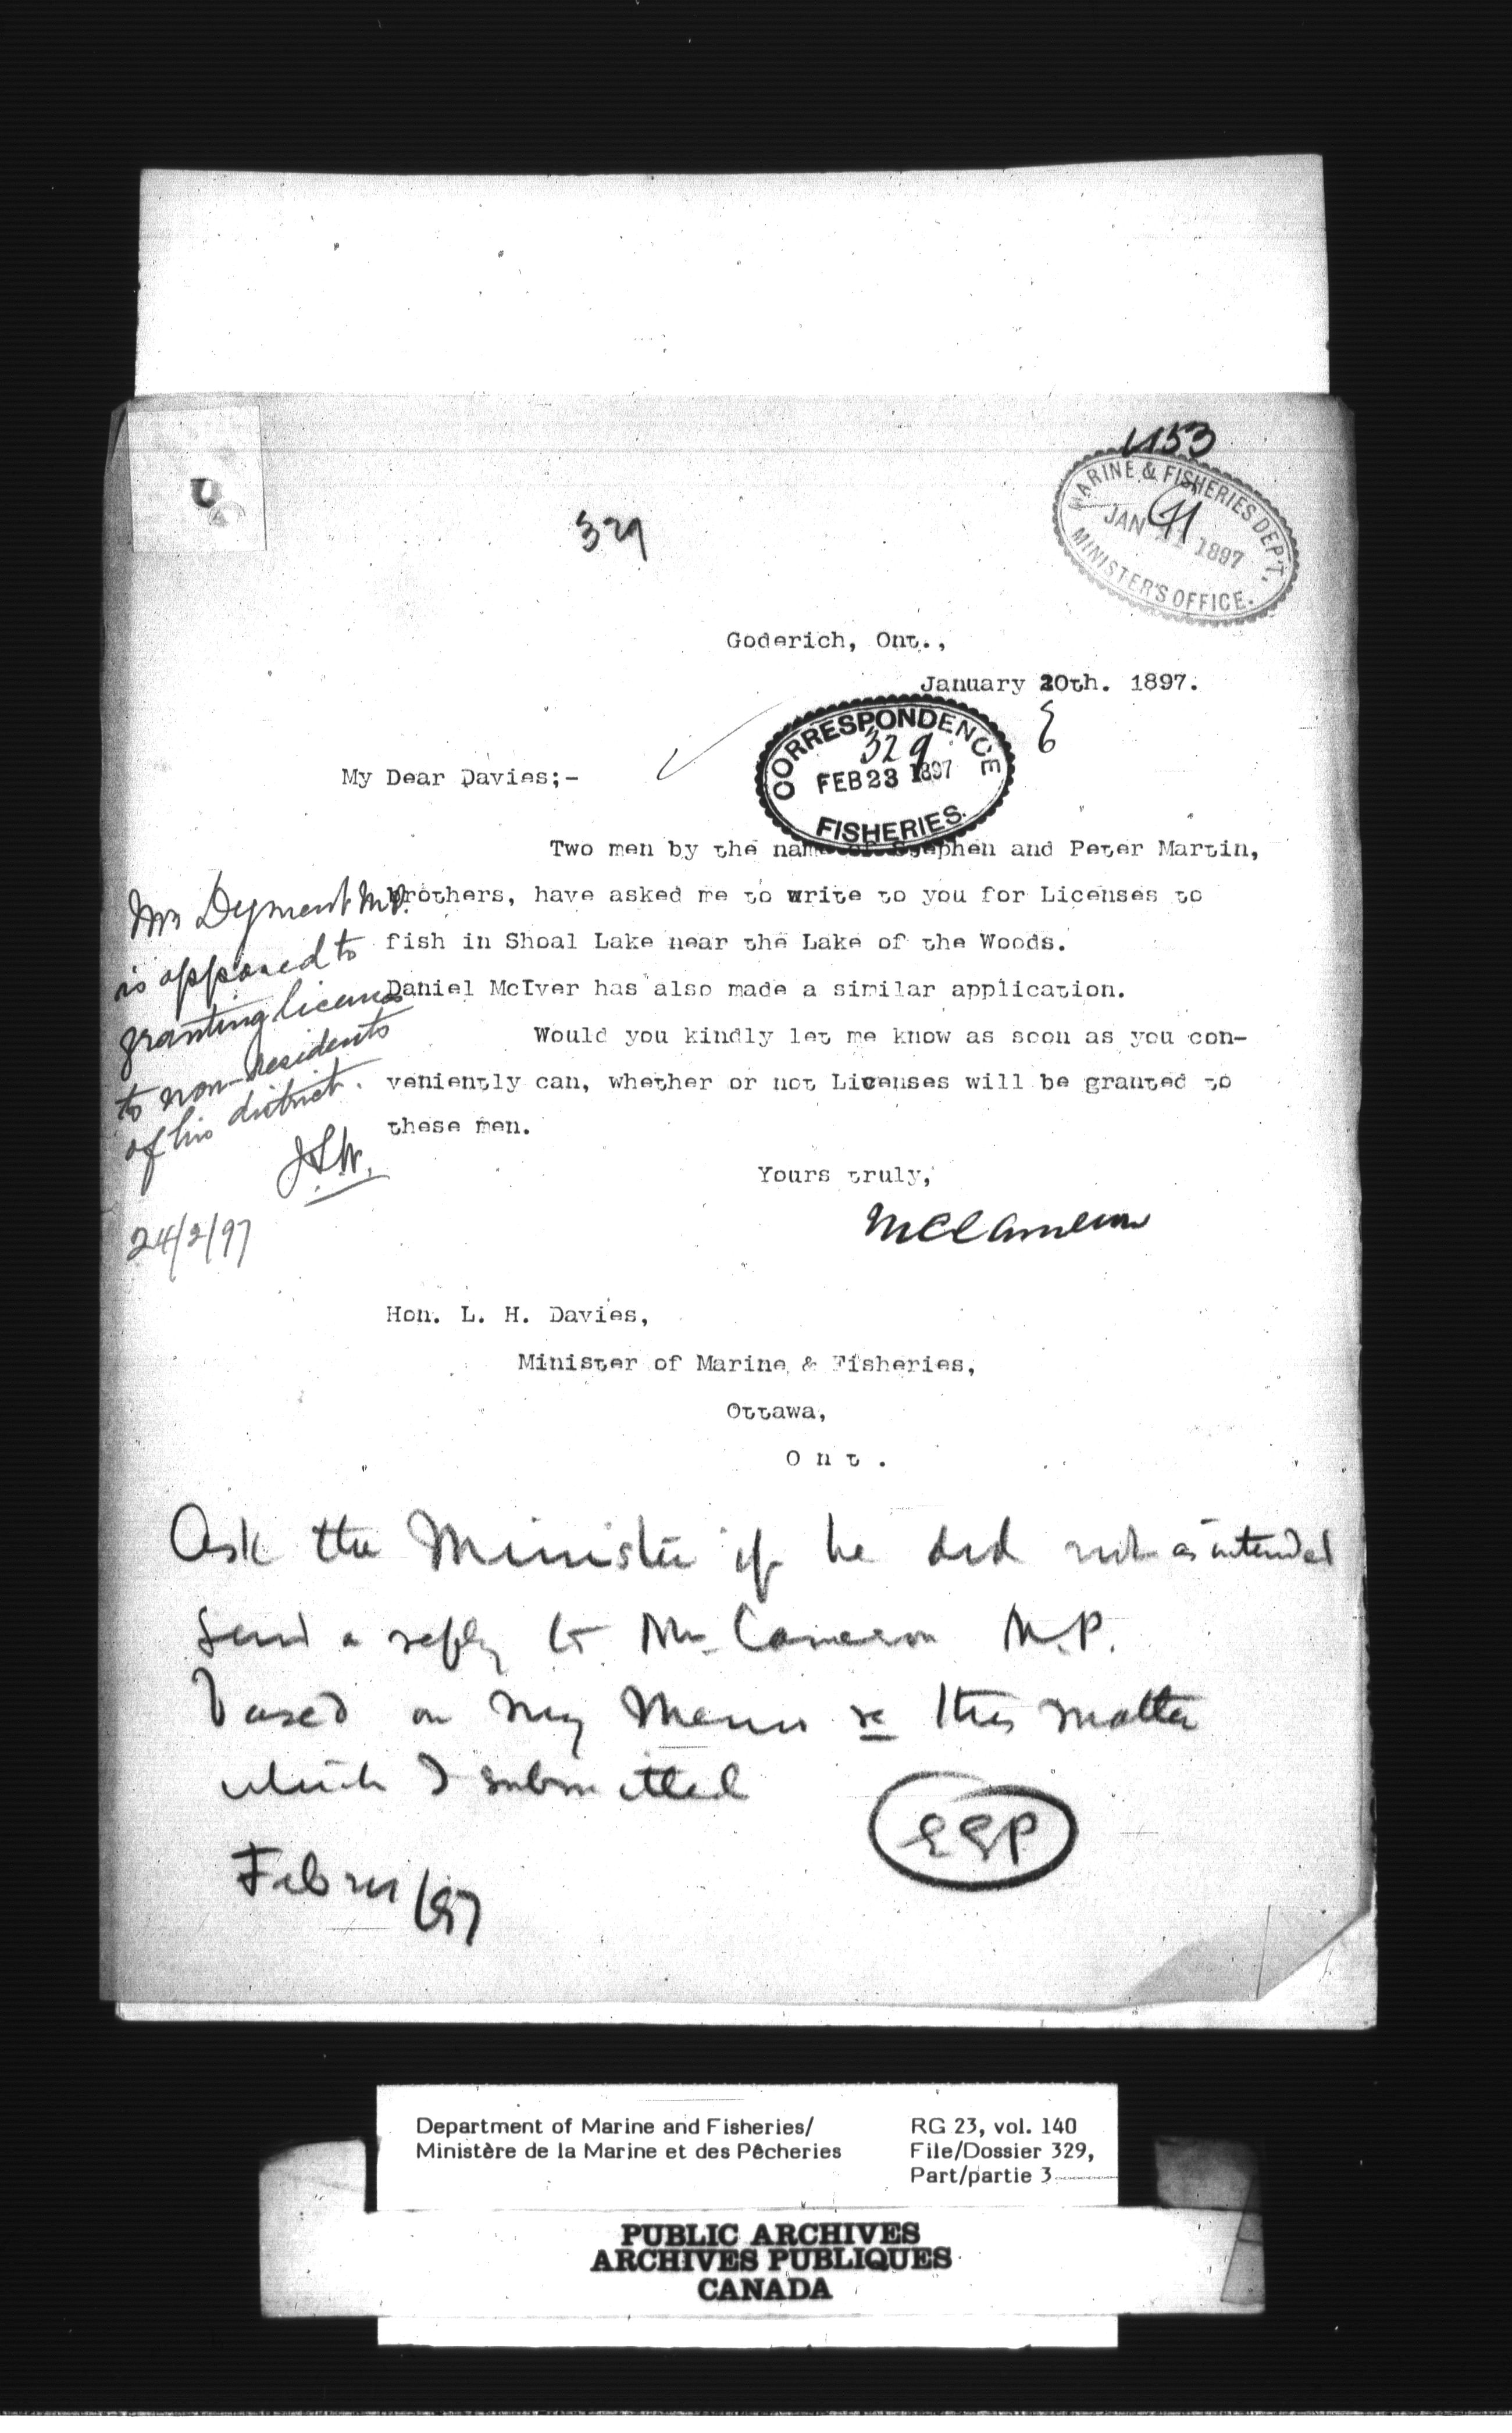 1153
MARINE & FISHERIES DEPT.
JAN 21 1897
MINISTER'S OFFICE.
329
Goderich, Ont.,
January 20th. 1897.
CORRESPONDENCE
329
FEB 23 1897
FISHERIES.
My Dear Davies;-
Two men by the name of Stephen and Peter Martin,
brothers, have asked me to write to you for Licenses to
fish in Shoal Lake near the Lake of the Woods.
Daniel McIver has also made a similar application.
Would you kindly let me know as soon as you con-
veniently can, whether or not Licenses will be granted to
these men.
Yours truly,
MCCameron
Mr Dyment M.P.
is opposed to
granting licenses
to non-residents
of his district.
24/2/97
Hon. L. H. Davies,
Minister of Marine & Fisheries,
Ottawa,
Ont.
Ask the Minister if he did not as intended
send a reply to Mr. Cameron M.P.
based on my Memo re this matter
which I submitted
EEP
/97
Department of Marine and Fisheries/
Ministère de la Marine et des Pêcheries
RG 23, vol. 140
File/Dossier 329,
Part/partie 3
PUBLIC ARCHIVES
ARCHIVES PUBLIQUES
CANADA